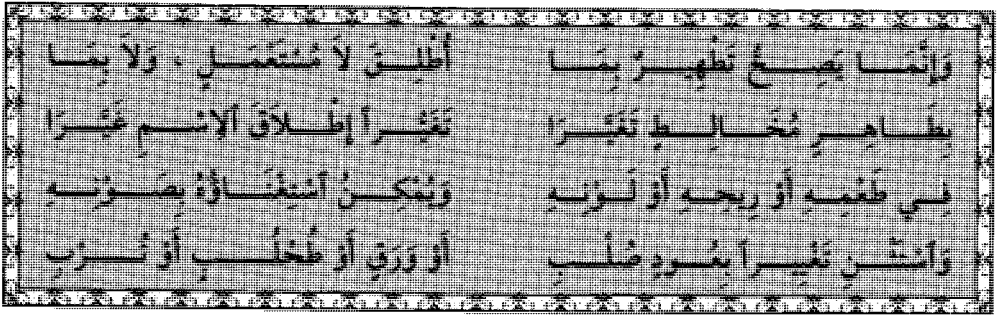 وَإِنَّمَا يَصِحُّ تَطْهِيرٌ بِمَا أُطْلِقَ لَا مُسْتَعْمَلٍ ، وَلَا بِمَا
بِطَاهِرٍ مُخَالِطٍ تَغَيَّرَا تَغَيُّراً إِطْلَاقَ الِاسْمِ غَيَّرَا
فِي طَعْمِهِ أَوْ رِيحِهِ أَوْ لَوْنِهِ وَيُمْكِنُ اسْتِغْنَاؤُهُ بِصَوْنِهِ
وَاسْتَثْنِ تَغْيِيراً بِعُودٍ صُلْبِ أَوْ وَرَقٍ أَوْ طُحْلُبٍ أَوْ تُرْبِ